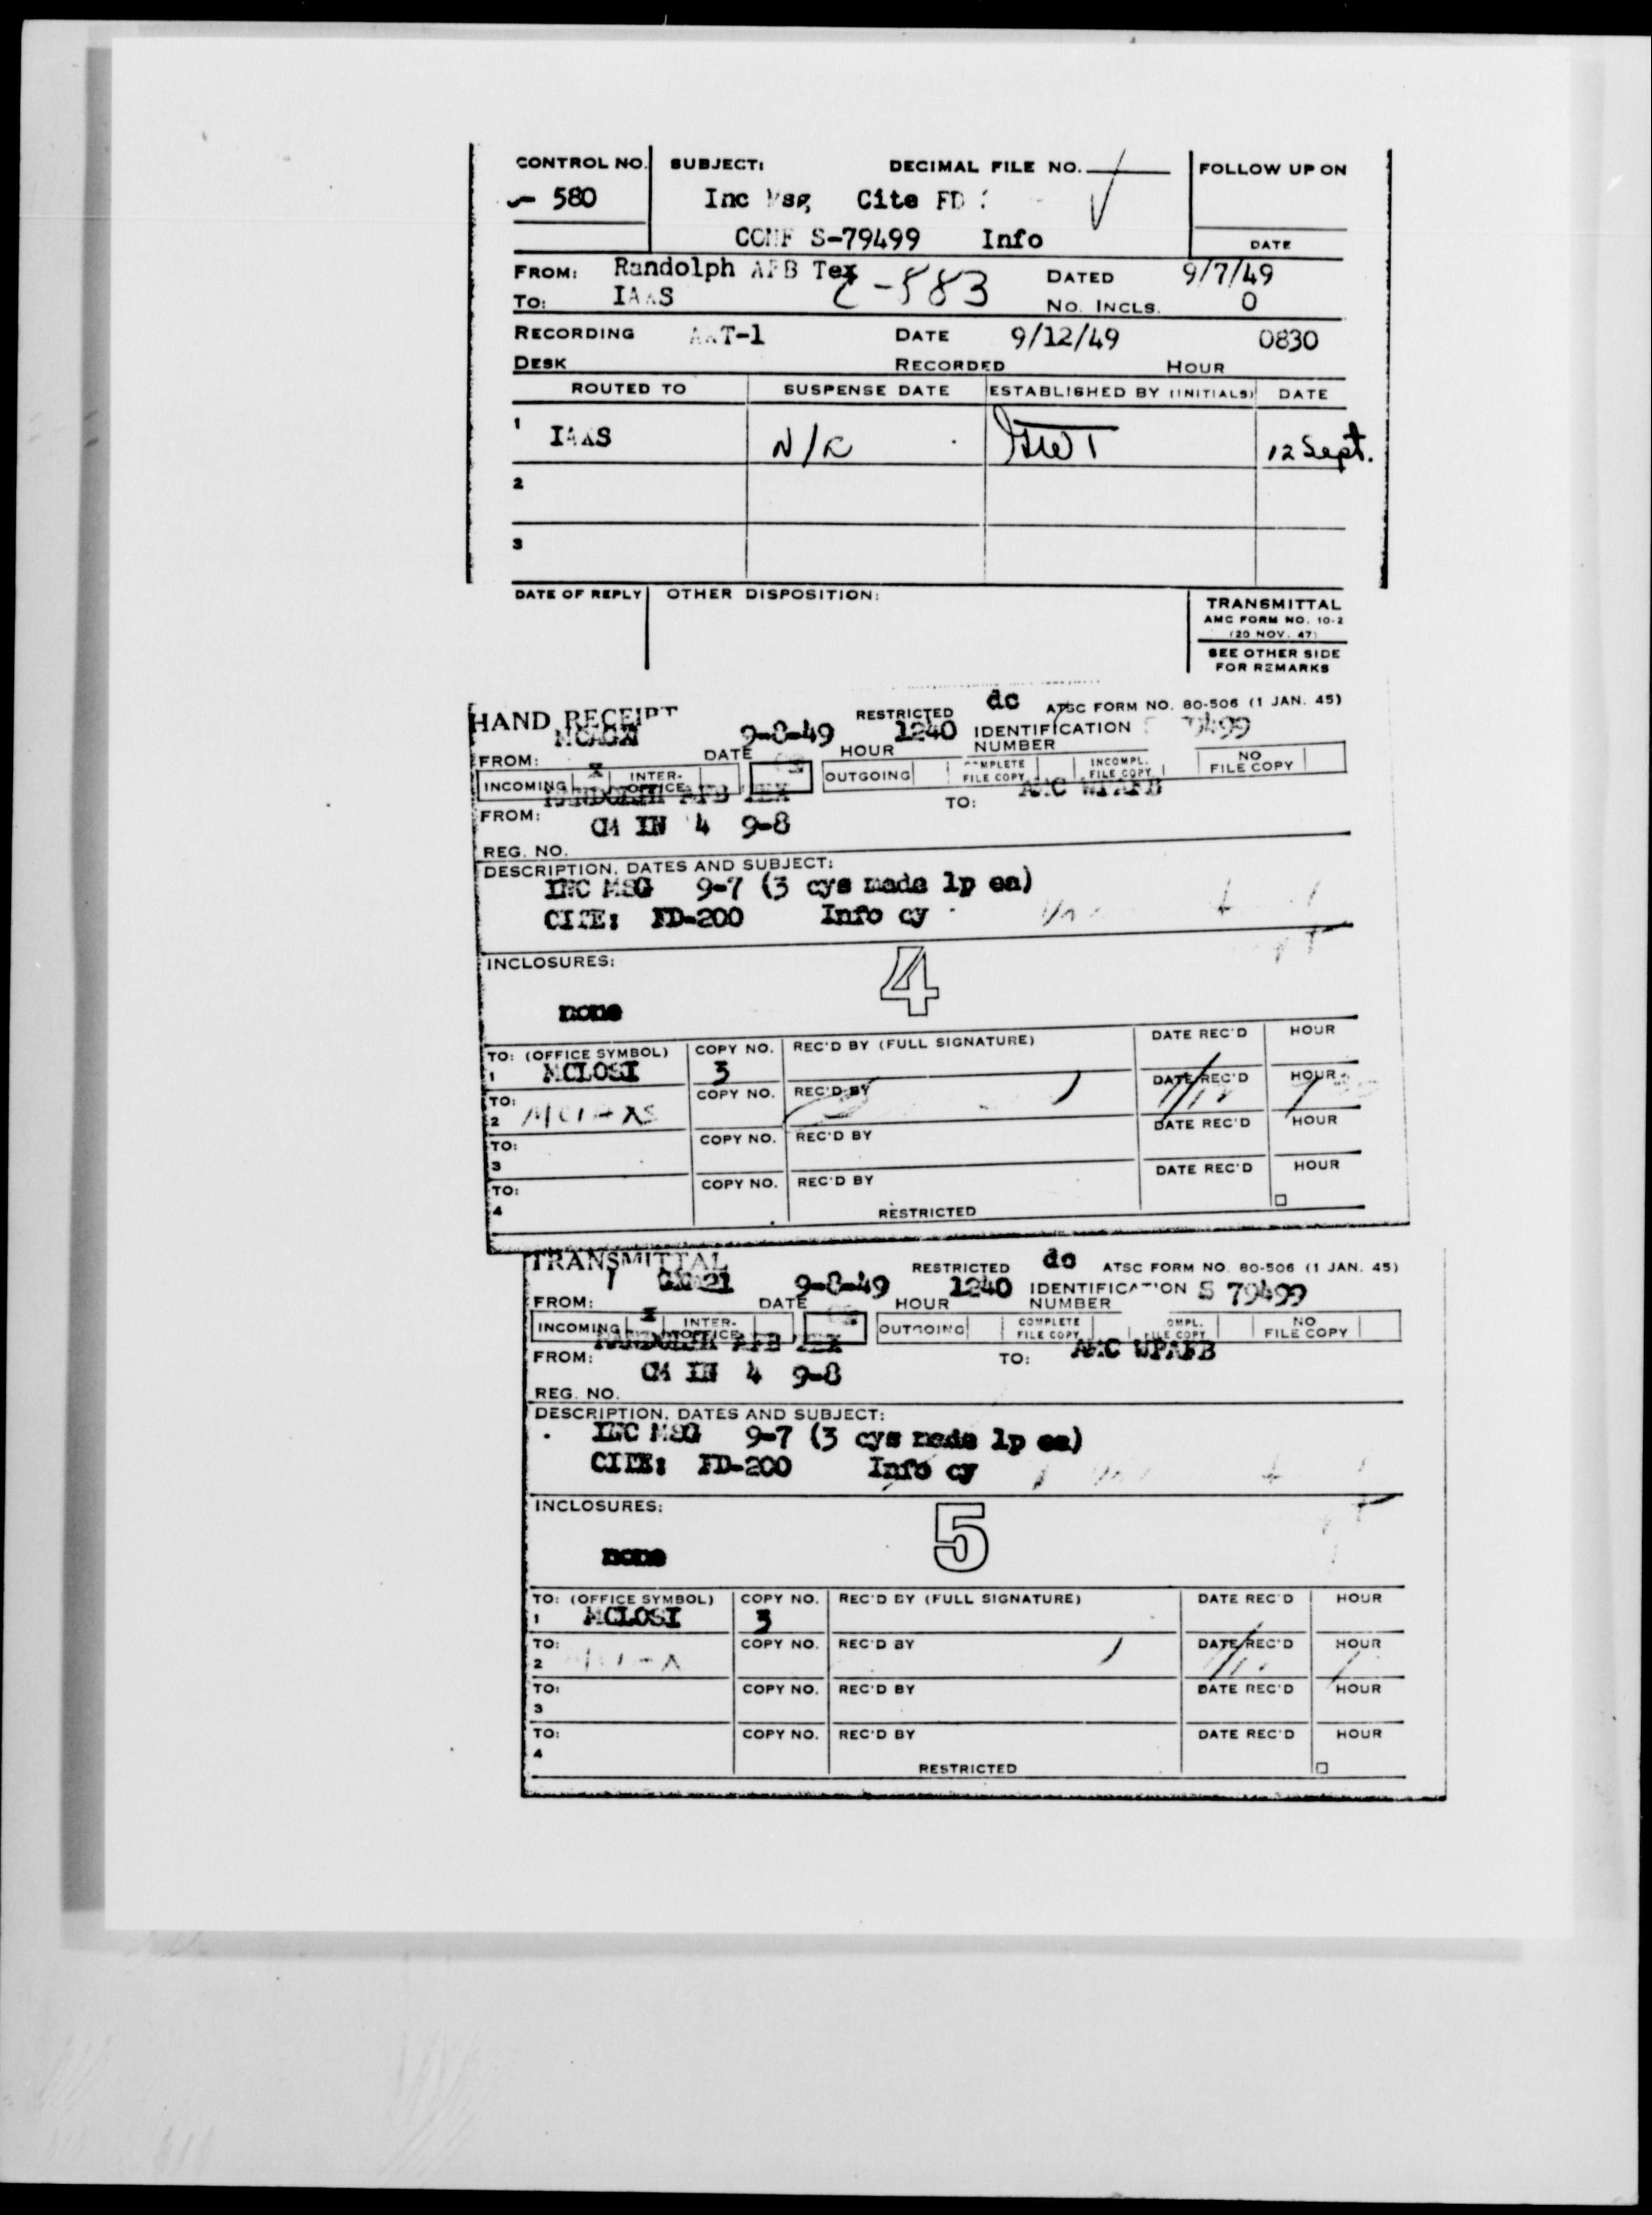 CONTROL NO. SUBJECT: DECIMAL FILE NO. FOLLOW UP ON
580 Inc Msg Cite FD
CONF S-79499 Info DATE
FROM: Randolph AFB Tex DATED 9/7/49
TO: C-583 NO. INCLS. 0
RECORDING DATE 9/12/49 0830
DESK RECORDED HOUR
ROUTED TO SUSPENSE DATE ESTABLISHED BY (INITIALS) DATE
1 12 Sept.
2
3
DATE OF REPLY OTHER DISPOSITION: TRANSMITTAL
AMC FORM NO. 10-2
(20 NOV. 47)
SEE OTHER SIDE
FOR REMARKS
HAND RECEIPT RESTRICTED dc ATSC FORM NO. 80-506 (1 JAN. 45)
9-8-49 1240 IDENTIFICATION 79499
FROM: DATE HOUR NUMBER
INCOMING X INTER-OFFICE OUTGOING COMPLETE FILE COPY INCOMPL. FILE COPY NO FILE COPY
FROM: RANDOLPH AFB TEX TO: AMC WPAFB
CM IN 4 9-8
REG. NO.
DESCRIPTION, DATES AND SUBJECT:
INC MSG 9-7 (3 cys made 1p ea)
CITE: FD-200 Info cy
INCLOSURES: 4
none
TO: (OFFICE SYMBOL) COPY NO. REC'D BY (FULL SIGNATURE) DATE REC'D HOUR
1 MCLOSI 3
TO: COPY NO. REC'D BY DATE REC'D HOUR
2
TO: COPY NO. REC'D BY DATE REC'D HOUR
3
TO: COPY NO. REC'D BY DATE REC'D HOUR
4 RESTRICTED
TRANSMITTAL RESTRICTED dc ATSC FORM NO. 80-506 (1 JAN. 45)
9-8-49 1240 IDENTIFICATION S 79499
FROM: DATE HOUR NUMBER
INCOMING X INTER-OFFICE OUTGOING COMPLETE FILE COPY OMPL. FILE COPY NO FILE COPY
FROM: RANDOLPH AFB TEX TO: AMC WPAFB
CM IN 4 9-8
REG. NO.
DESCRIPTION, DATES AND SUBJECT:
INC MSG 9-7 (3 cys made 1p ea)
CITE: FD-200 Info cy
INCLOSURES: 5
none
TO: (OFFICE SYMBOL) COPY NO. REC'D BY (FULL SIGNATURE) DATE REC'D HOUR
1 MCLOSI 3
TO: COPY NO. REC'D BY DATE REC'D HOUR
2
TO: COPY NO. REC'D BY DATE REC'D HOUR
3
TO: COPY NO. REC'D BY DATE REC'D HOUR
4 RESTRICTED